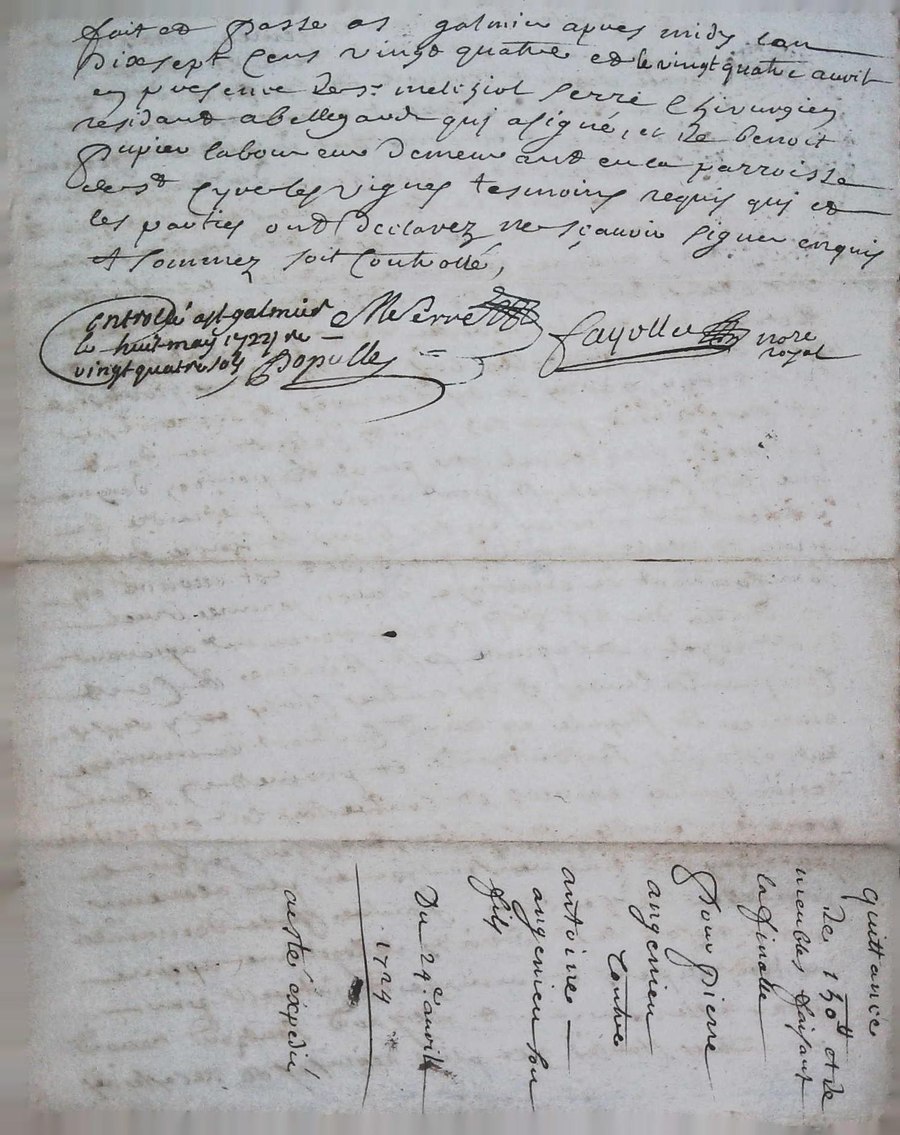 fait et passé a st galmier apres midy l'an
Dixsept Cens vingt quatre et le vingt quatre avril
en presence de sr Serre Chirurgien
residant a bellegarde qui a signé, et de benoit
pupier laboureur Demeurant en la parroisse
de st Cyr les vignes tesmoins requis qui et
les parties ont Declarez ne sçavoir signer enquis
& sommez soit Controllé,
Controllé a st galmier
le huit may 1724 re
vingt quatre sols
M Serre
Populle
fayolle
nore
royal
quittance
de 150lt et de
meubles faisant
la finalle
Pour pierre
angenieu
Contre
antoine
angenieu son
fils
Du 24e avril
1724
a esté expedié